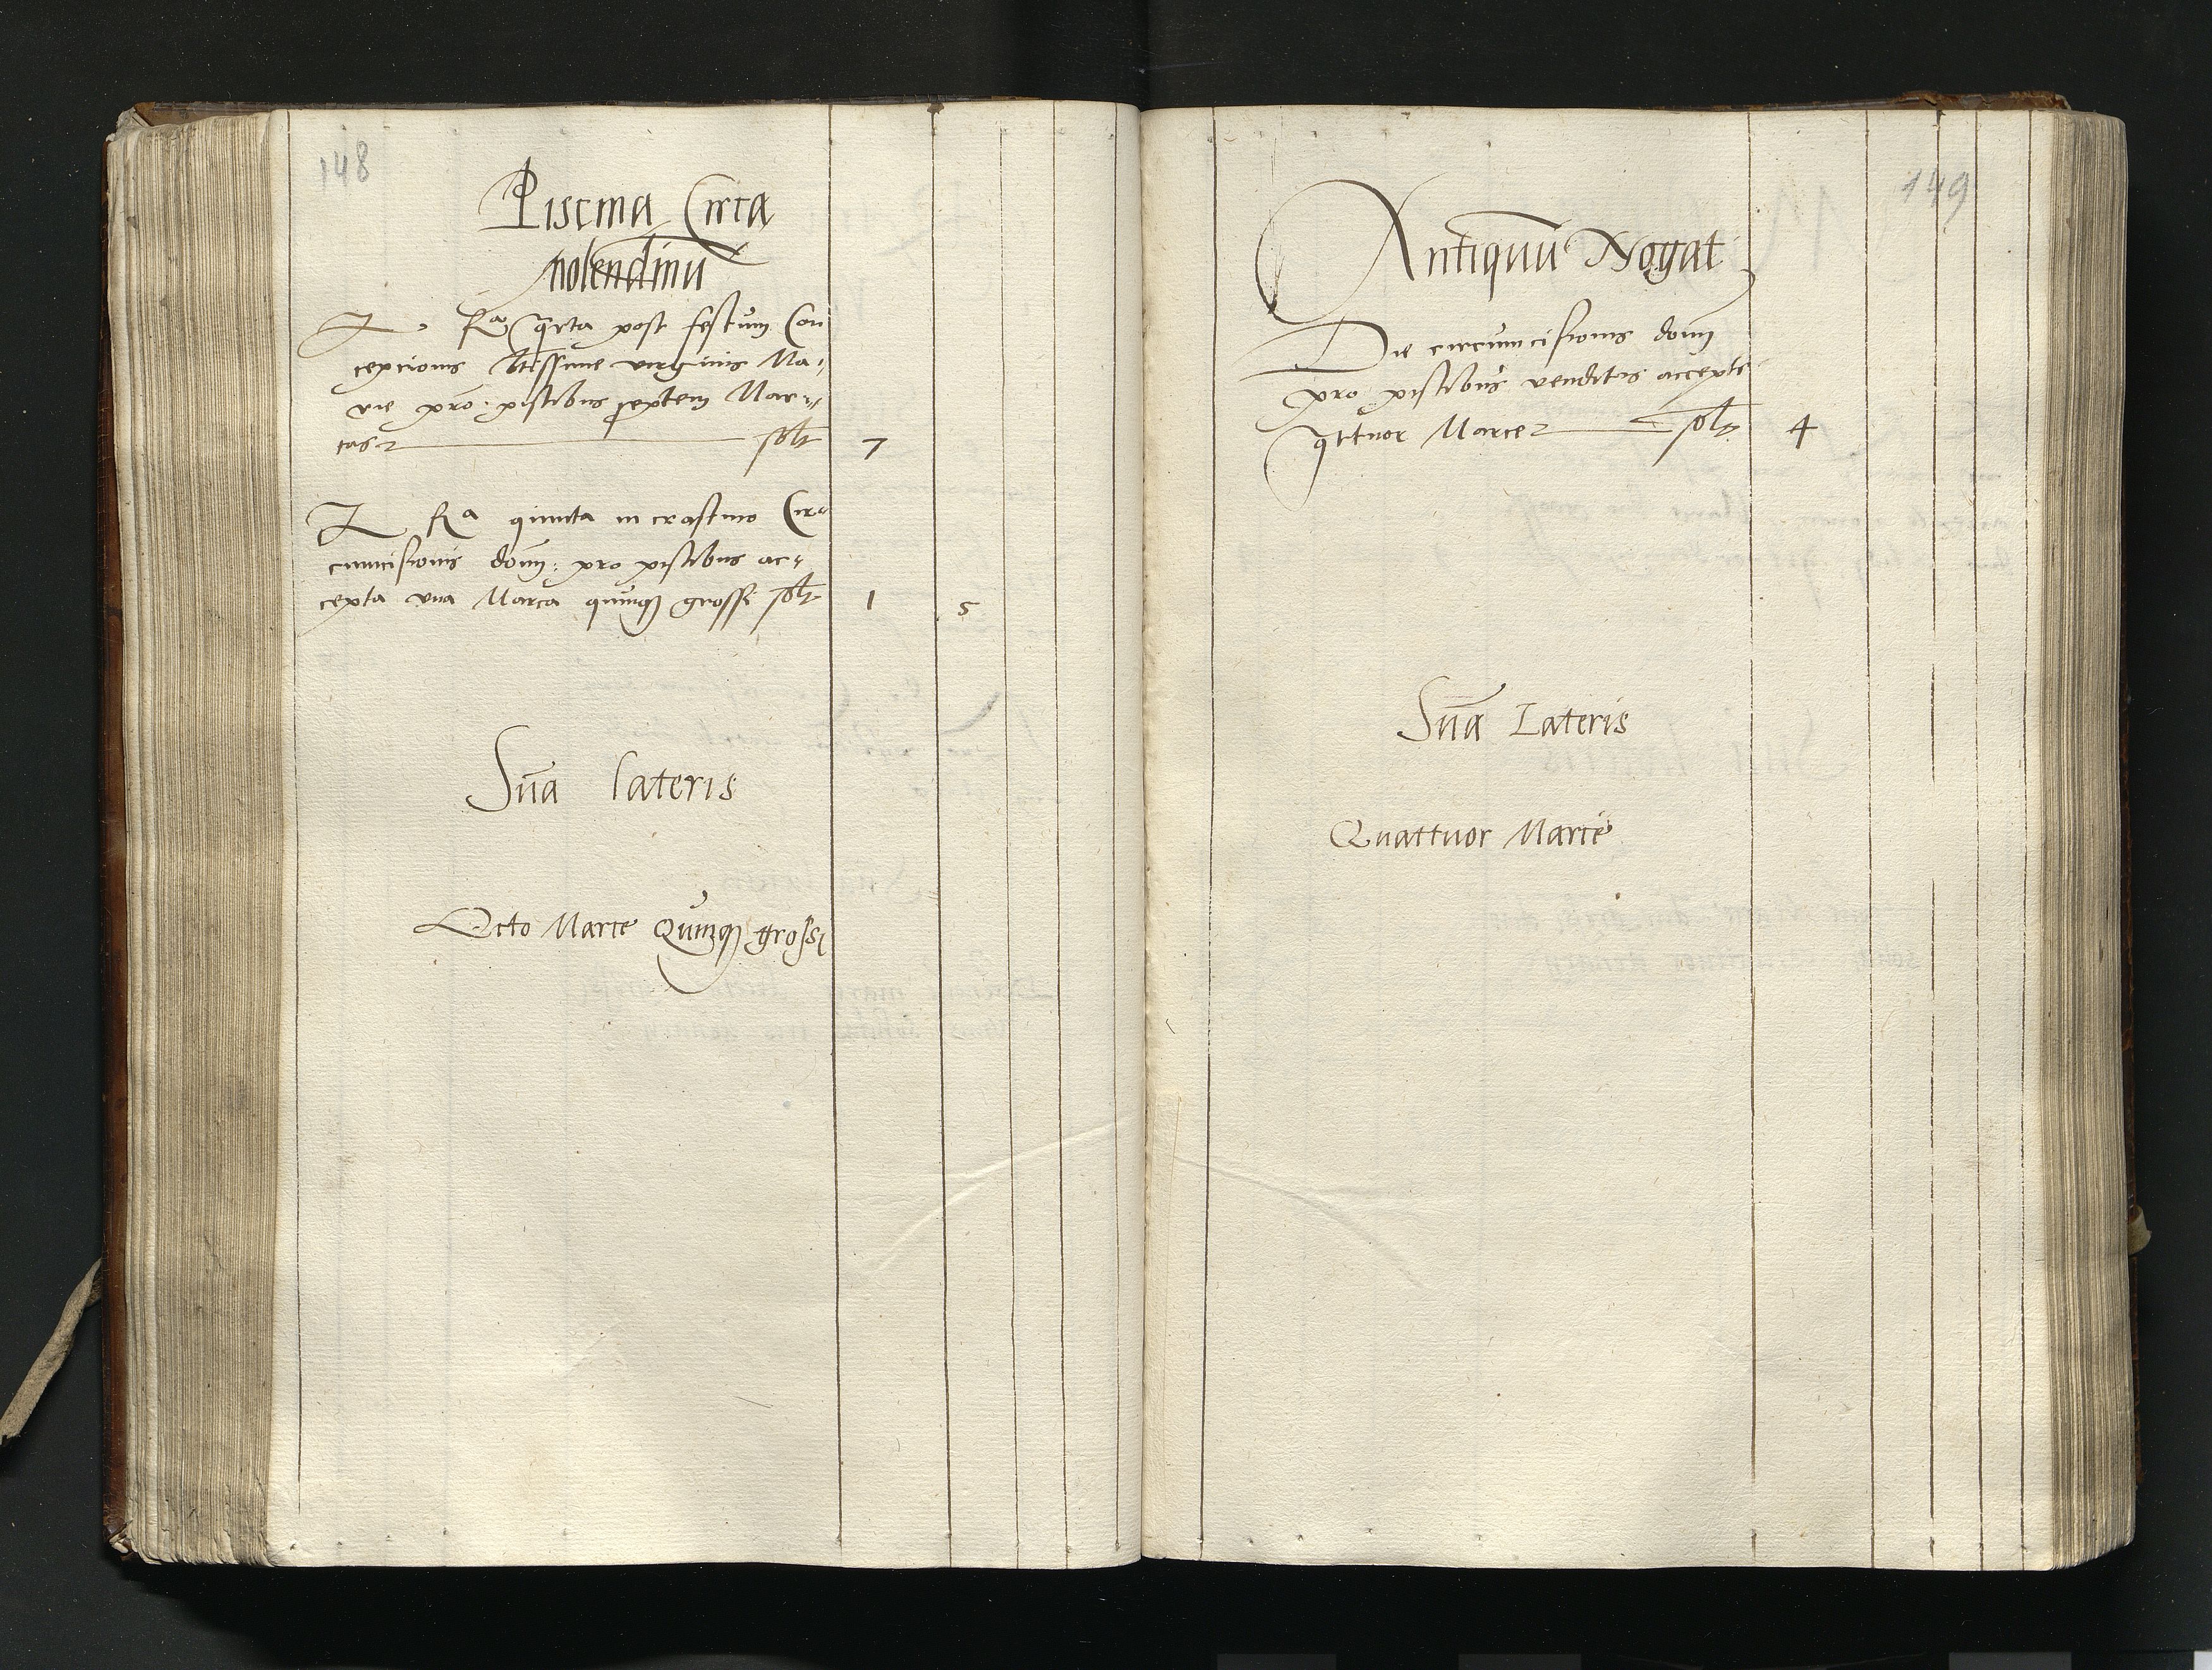 148
Piscina Circa
molendinū
F Rᵃ qrta post festum Con
cepcionis btissime virginis Ma⸗
rie pro piscibus septem Mar⸗
cas solt 7
F Rᵃ quinta in crastino Cir⸗
cumcisionis domī pro piscibus ac⸗
cepta una Marca quinqꝫ grossi solt 1 5
Sūa lateris
Octo Marce Quinqꝫ grossi
149
Antiquū Nogat
Die circumcisionis domī
pro piscibus venditis accepte
qttuor Marce solt 4
Sūa Lateris
Quattuor Marce